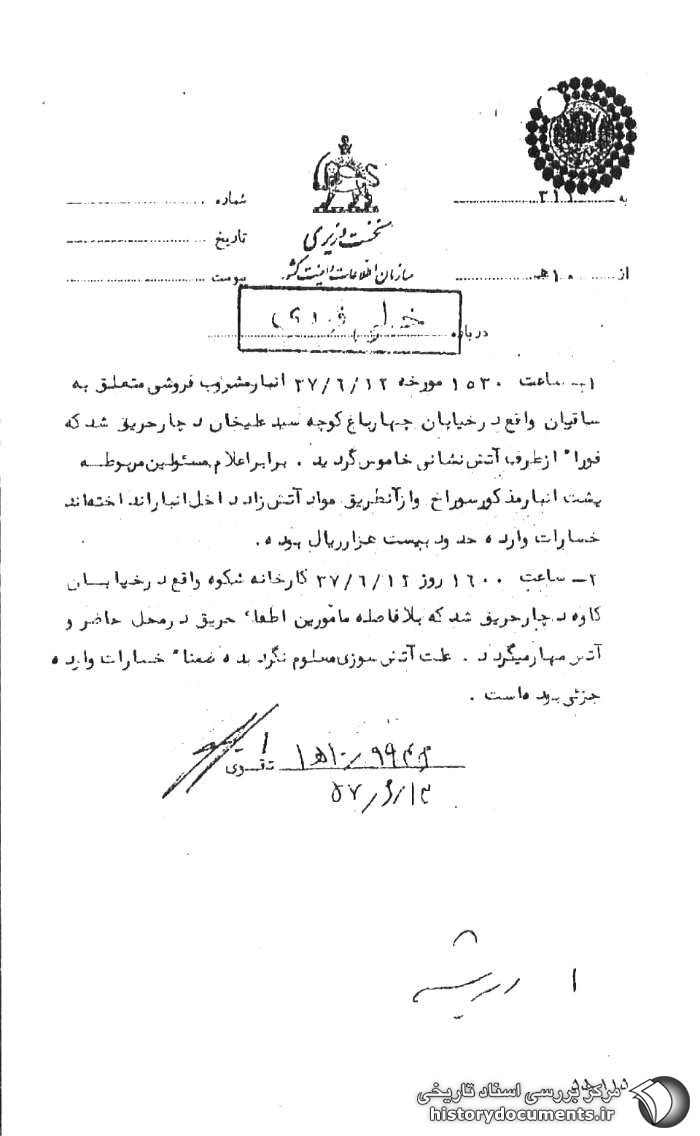 به ۳۱۱
شماره
نخست وزیری
تاریخ
سازمان اطلاعات و امنیت کشور
از ۱۰ﻫ
پیوست
خیلی فوری
درباره
۱ـ ساعت ۱۵۳۰ مورخه ۳۷/۶/۱۲ انبار مشروب فروشی متعلق به
ساقیان واقع در خیابان چهارباغ کوچه سید علیخان دچار حریق شد که
فوراً از طرف آتش نشانی خاموش گردید . برابر اعلام مسئولین مربوطه
پشت انبار مذکور سوراخ و از آنطریق مواد آتش زا داخل انبار انداخته‌اند
خسارات وارده حدود بیست هزار ریال بوده .
۲ـ ساعت ۱۶۰۰ روز ۳۷/۶/۱۲ کارخانه شکوه واقع در خیابان
کاوه دچار حریق شد که بلافاصله مامورین اطفاء حریق در محل حاضر و
آتش مهار میگردد . علت آتش سوزی معلوم نگردیده ضمناً خسارات وارده
جزئی بوده است .
تقوی
۵۷/۶/۱۳
مرکز بررسی اسناد تاریخی
historydocuments.ir